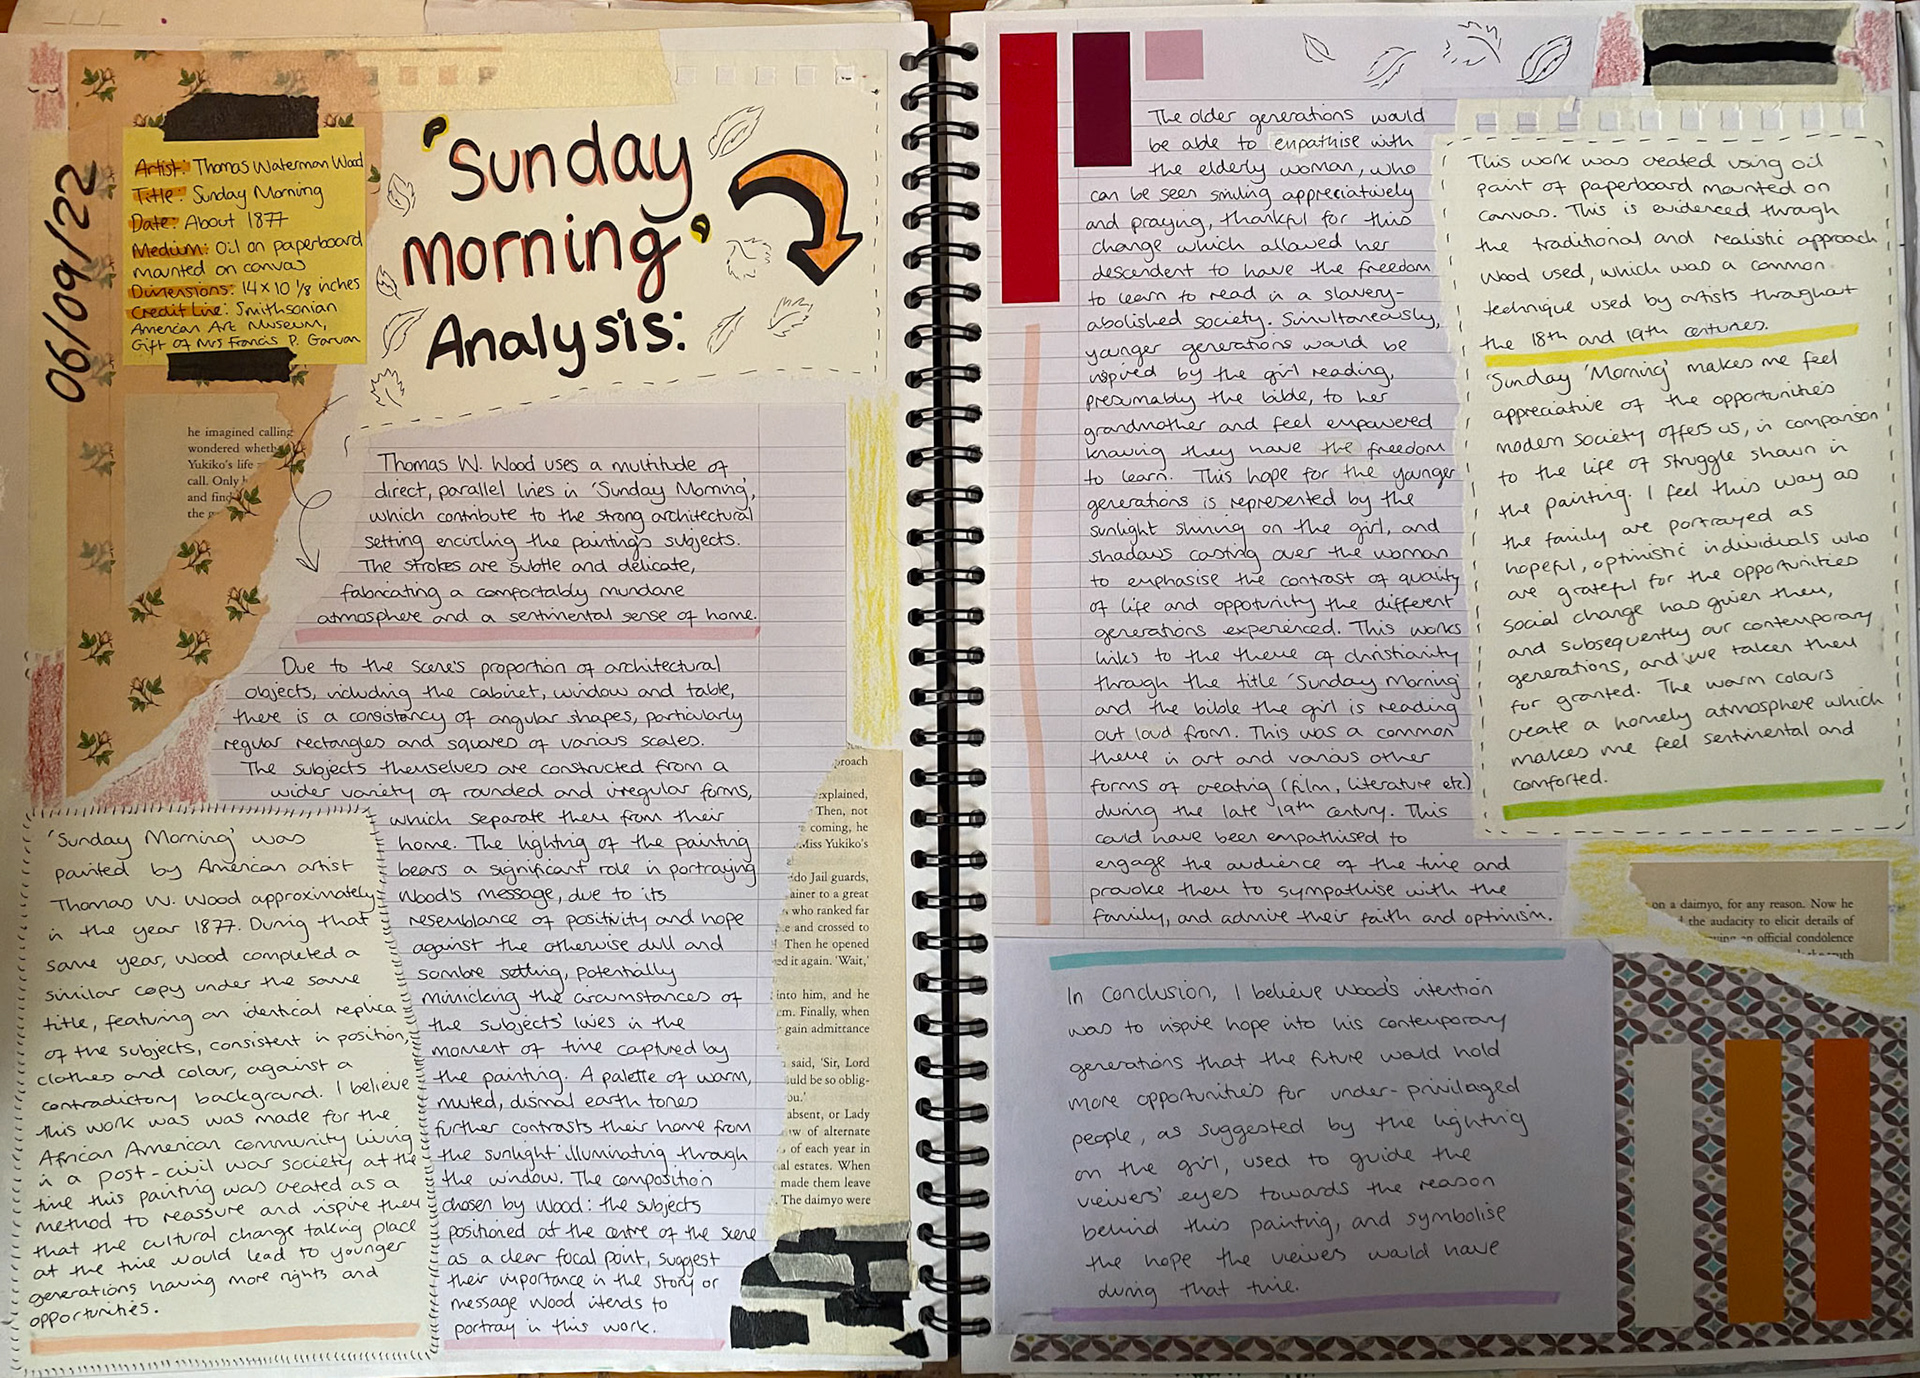 06/09/22
Artist: Thomas Waterman Wood
Title: Sunday Morning
Date: About 1877
Medium: Oil on paperboard
mounted on canvas
Dimensions: 14 x 10 1/8 inches
Credit Line: Smithsonian
American Art Museum,
Gift of Mrs Francis P. Garvan
'Sunday
morning'
Analysis:
he imagined calling
wondered wheth
Yukiko's life
call. Only
and find
the
Thomas W. Wood uses a multitude of
direct, parallel lines in 'Sunday Morning',
which contribute to the strong architectural
setting encircling the painting's subjects.
The strokes are subtle and delicate,
fabricating a comfortably mundane
atmosphere and a sentimental sense of home.
Due to the scene's proportion of architectural
objects, including the cabinet, window and table,
there is a consistancy of angular shapes, particularly
regular rectangles and squares of various scales.
The subjects themselves are constructed from a
wider variety of rounded and irregular forms,
which separate them from their
home. The lighting of the painting
bears a significant role in portraying
Wood's message, due to its
resemblance of positivity and hope
against the otherwise dull and
sombre setting, potentially
mimicking the circumstances of
the subjects' lives in the
moment of time captured by
the painting. A palette of warm,
muted, dismal earth tones
further contrasts their home from
the sunlight illuminating through
the window. The composition
chosen by Wood: the subjects
positioned at the centre of the scene
as a clear focal point, suggest
their importance in the story or
message Wood intends to
portray in this work.
'Sunday Morning' was
painted by American artist
Thomas W. Wood approximately
in the year 1877. During that
same year, Wood completed a
similar copy under the same
title, featuring an identical replica
of the subjects, consistent in position,
clothes and colour, against a
contradictory background. I believe
this work was was made for the
African American community living
in a post-civil war society at the
time this painting was created as a
method to reassure and inspire them
that the cultural change taking place
at the time would lead to younger
generations having more rights and
opportunities.
proach
explained,
Then, not
coming, he
Miss Yukiko's
do Jail guards,
ainer to a great
who ranked far
e and crossed to
Then he opened
ed it again. 'Wait,'
into him, and he
m. Finally, when
gain admittance
said, 'Sir, Lord
uld be so oblig-
ou.'
absent, or Lady
w of alternate
of each year in
al estates. When
made them leave
The daimyo were
The older generations would
be able to empathise with
the elderly woman, who
can be seen smiling appreciatively
and praying, thankful for this
change which allowed her
descendent to have the freedom
to learn to read in a slavery-
abolished society. Simultaneously,
younger generations would be
inspired by the girl reading,
presumably the bible, to her
grandmother and feel empowered
knowing they have the freedom
to learn. This hope for the younger
generations is represented by the
sunlight shining on the girl, and
shadows casting over the woman
to emphasise the contrast of quality
of life and oppotunity the different
generations experienced. This works
links to the theme of christianity
through the title 'Sunday Morning'
and the bible the girl is reading
out loud from. This was a common
theme in art and various other
forms of creating (film, literature etc.)
during the late 19th century. This
could have been empathised to
engage the audience of the time and
provoke them to sympathise with the
family, and admire their faith and optimism.
This work was created using oil
paint of paperboard mounted on
canvas. This is evidenced through
the traditional and realistic approach
Wood used, which was a common
technique used by artists throughout
the 18th and 19th centuries.
'Sunday 'Morning' makes me feel
appreciative of the opportunities
modern society offers us, in comparison
to the life of struggle shown in
the painting. I feel this way as
the family are portrayed as
hopeful, optimistic individuals who
are grateful for the opportunities
social change has given them,
and subsequently our contemporary
generations, and we taken them
for granted. The warm colours
create a homely atmosphere which
makes me feel sentimental and
comforted.
on a daimyo, for any reason. Now he
the audacity to elicit details of
an official condolence
In conclusion, I believe Wood's intention
was to inspire hope into his contemporary
generations that the future would hold
more opportunities for under-privilaged
people, as suggested by the lighting
on the girl, used to guide the
viewers' eyes towards the reason
behind this painting, and symbolise
the hope the veiwers would have
during that time.